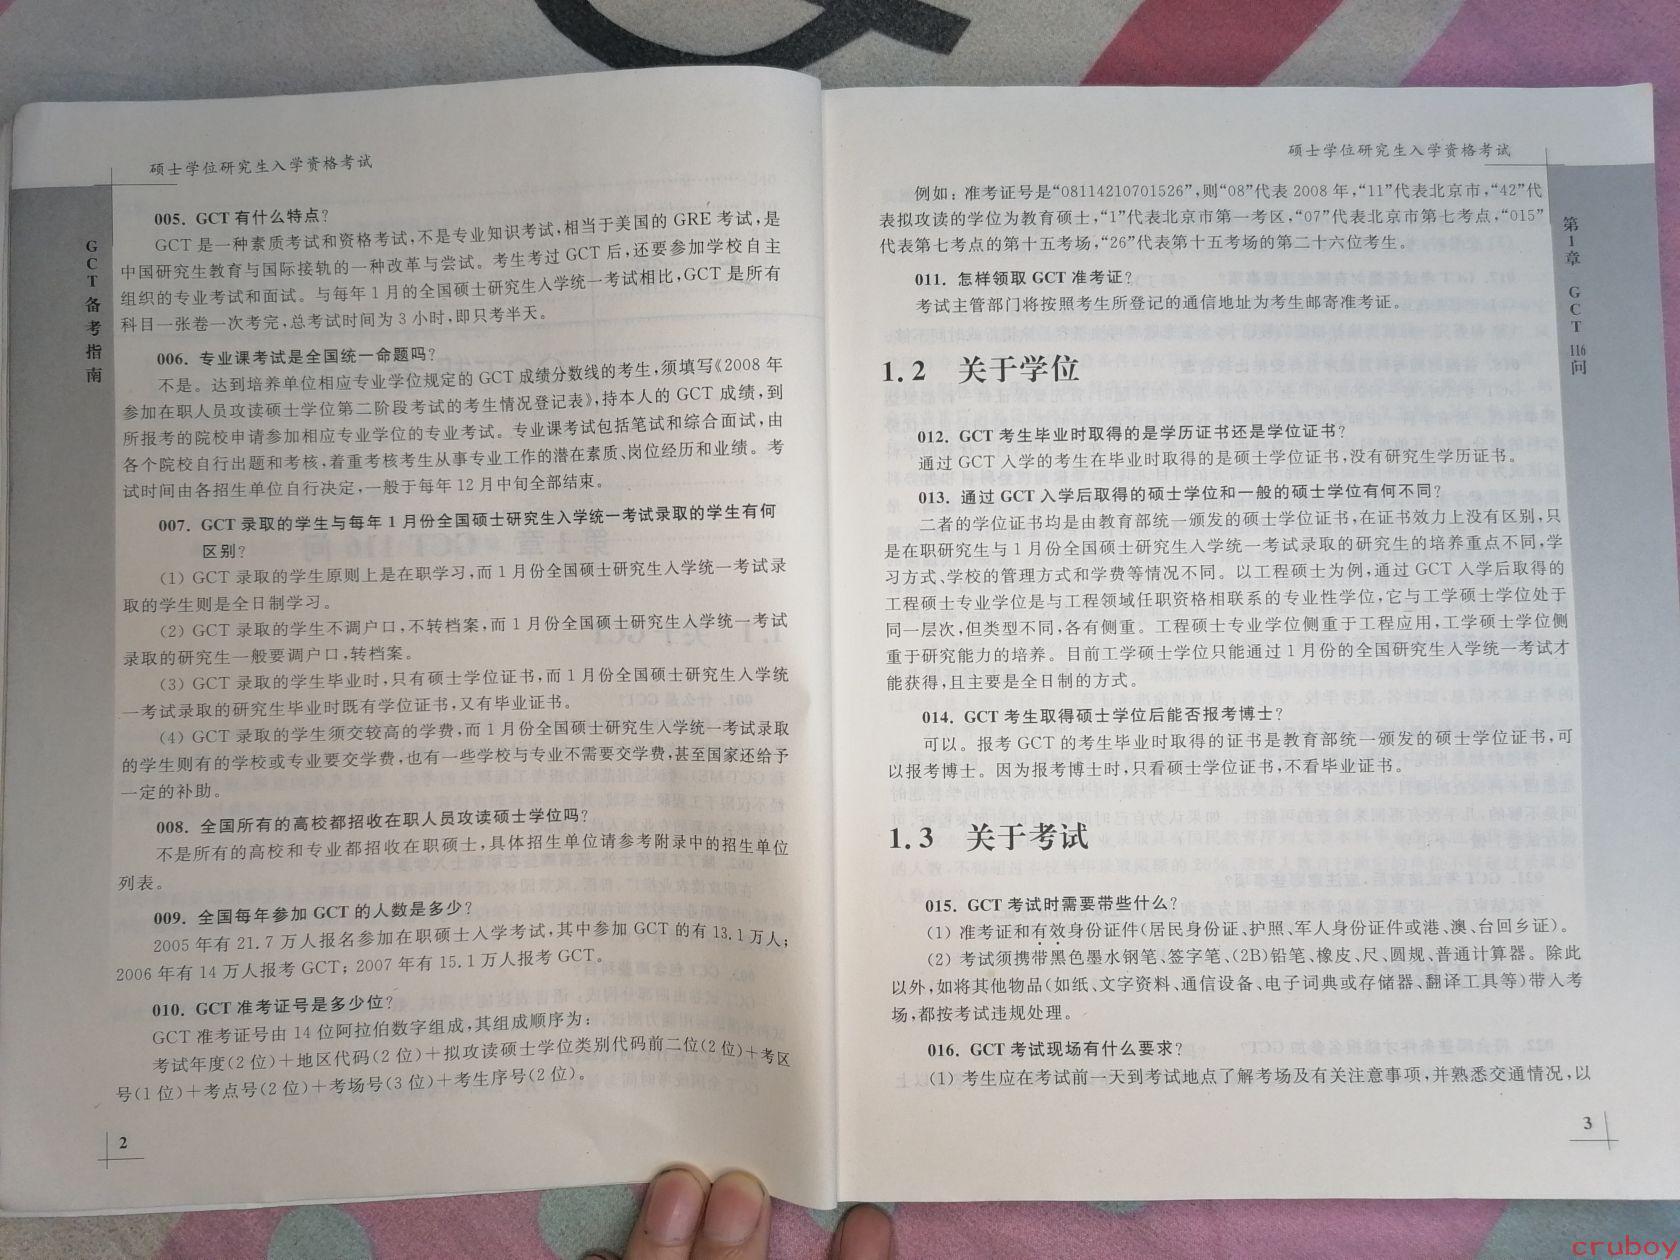 硕士学位研究生入学资格考试
GCT备考指南
005. GCT 有什么特点?
GCT 是一种素质考试和资格考试,不是专业知识考试,相当于美国的 GRE 考试,是
中国研究生教育与国际接轨的一种改革与尝试。考生考过 GCT 后,还要参加学校自主
组织的专业考试和面试。与每年 1 月的全国硕士研究生入学统一考试相比,GCT 是所有
科目一张卷一次考完,总考试时间为 3 小时,即只考半天。
006. 专业课考试是全国统一命题吗?
不是。达到培养单位相应专业学位规定的 GCT 成绩分数线的考生,须填写《2008 年
参加在职人员攻读硕士学位第二阶段考试的考生情况登记表》,持本人的 GCT 成绩,到
所报考的院校申请参加相应专业学位的专业考试。专业课考试包括笔试和综合面试,由
各个院校自行出题和考核,着重考核考生从事专业工作的潜在素质、岗位经历和业绩。考
试时间由各招生单位自行决定,一般于每年 12 月中旬全部结束。
007. GCT 录取的学生与每年 1 月份全国硕士研究生入学统一考试录取的学生有何
区别?
(1) GCT 录取的学生原则上是在职学习,而 1 月份全国硕士研究生入学统一考试录
取的学生则是全日制学习。
(2) GCT 录取的学生不调户口,不转档案,而 1 月份全国硕士研究生入学统一考试
录取的研究生一般要调户口,转档案。
(3) GCT 录取的学生毕业时,只有硕士学位证书,而 1 月份全国硕士研究生入学统
一考试录取的研究生毕业时既有学位证书,又有毕业证书。
(4) GCT 录取的学生须交较高的学费,而 1 月份全国硕士研究生入学统一考试录取
的学生则有的学校或专业要交学费,也有一些学校与专业不需要交学费,甚至国家还给予
一定的补助。
008. 全国所有的高校都招收在职人员攻读硕士学位吗?
不是所有的高校和专业都招收在职硕士,具体招生单位请参考附录中的招生单位
列表。
009. 全国每年参加 GCT 的人数是多少?
2005 年有 21.7 万人报名参加在职硕士入学考试,其中参加 GCT 的有 13.1 万人;
2006 年有 14 万人报考 GCT; 2007 年有 15.1 万人报考 GCT。
010. GCT 准考证号是多少位?
GCT 准考证号由 14 位阿拉伯数字组成,其组成顺序为:
考试年度(2 位)+地区代码(2 位)+拟攻读硕士学位类别代码前二位(2 位)+考区
号(1 位)+考点号(2 位)+考场号(3 位)+考生序号(2 位)。
2
硕士学位研究生入学资格考试
第1章 GCT 116问
例如: 准考证号是“08114210701526”,则“08”代表 2008 年,“11”代表北京市,“42”代
表拟攻读的学位为教育硕士,“1”代表北京市第一考区,“07”代表北京市第七考点,“015”
代表第七考点的第十五考场,“26”代表第十五考场的第二十六位考生。
011. 怎样领取 GCT 准考证?
考试主管部门将按照考生所登记的通信地址为考生邮寄准考证。
1.2 关于学位
012. GCT 考生毕业时取得的是学历证书还是学位证书?
通过 GCT 入学的考生在毕业时取得的是硕士学位证书,没有研究生学历证书。
013. 通过 GCT 入学后取得的硕士学位和一般的硕士学位有何不同?
二者的学位证书均是由教育部统一颁发的硕士学位证书,在证书效力上没有区别,只
是在职研究生与 1 月份全国硕士研究生入学统一考试录取的研究生的培养重点不同,学
习方式、学校的管理方式和学费等情况不同。以工程硕士为例,通过 GCT 入学后取得的
工程硕士专业学位是与工程领域任职资格相联系的专业性学位,它与工学硕士学位处于
同一层次,但类型不同,各有侧重。工程硕士专业学位侧重于工程应用,工学硕士学位侧
重于研究能力的培养。目前工学硕士学位只能通过 1 月份的全国研究生入学统一考试才
能获得,且主要是全日制的方式。
014. GCT 考生取得硕士学位后能否报考博士?
可以。报考 GCT 的考生毕业时取得的证书是教育部统一颁发的硕士学位证书,可
以报考博士。因为报考博士时,只看硕士学位证书,不看毕业证书。
1.3 关于考试
015. GCT 考试时需要带些什么?
(1) 准考证和有效身份证件(居民身份证、护照、军人身份证件或港、澳、台回乡证)。
(2) 考试须携带黑色墨水钢笔、签字笔、(2B)铅笔、橡皮、尺、圆规、普通计算器。除此
以外,如将其他物品(如纸、文字资料、通信设备、电子词典或存储器、翻译工具等)带入考
场,都按考试违规处理。
016. GCT 考试现场有什么要求?
(1) 考生应在考试前一天到考试地点了解考场及有关注意事项,并熟悉交通情况,以
3
cruboy